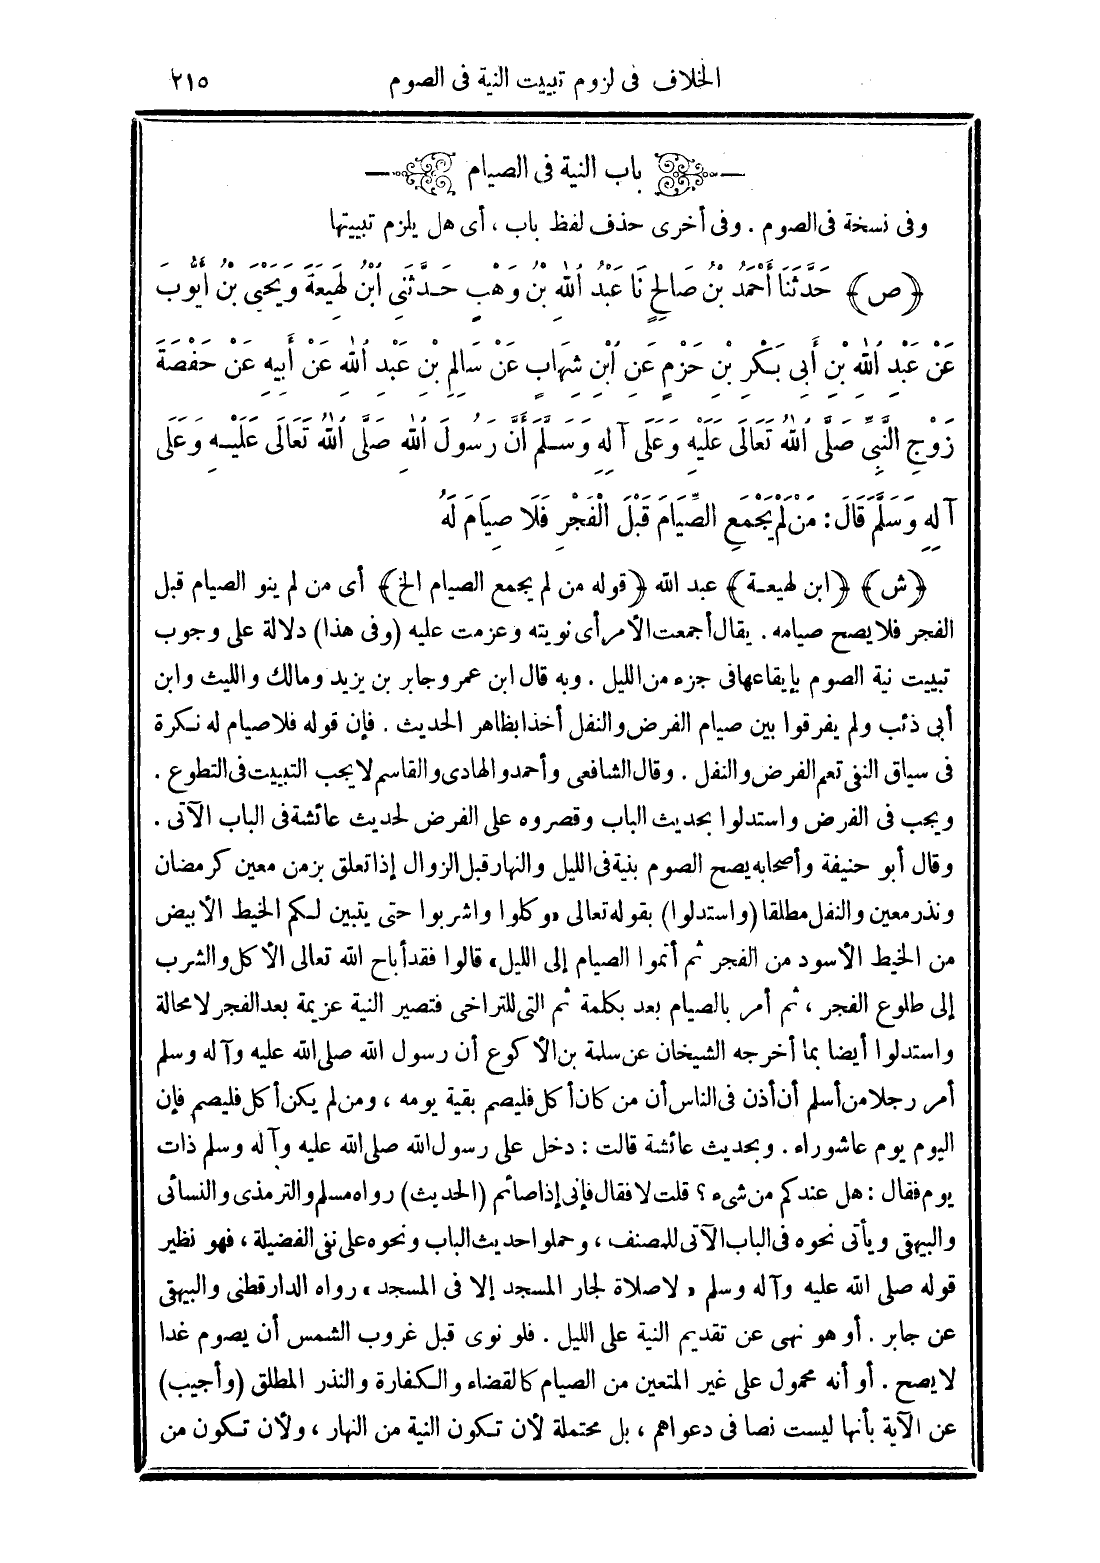 الخلاف فى لزوم تبييت النية فى الصوم ٢١٥
باب النية فى الصيام
وفى نسخة فى الصوم . وفى أخرى حذف لفظ باب ، أى هل يلزم تبييتها
﴿ص﴾ حَدَّثَنَا أَحْمَدُ بْنُ صَالِحٍ نَا عَبْدُ اللهِ بْنُ وَهْبٍ حَدَّثَنِى ابْنُ لَهِيعَةَ وَيَحْيَى بْنُ أَيُّوبَ
عَنْ عَبْدِ اللهِ بْنِ أَبِى بَكْرِ بْنِ حَزْمٍ عَنِ ابْنِ شِهَابٍ عَنْ سَالِمِ بْنِ عَبْدِ اللهِ عَنْ أَبِيهِ عَنْ حَفْصَةَ
زَوْجِ النَّبِىِّ صَلَّى اللهُ تَعَالَى عَلَيْهِ وَعَلَى آلِهِ وَسَلَّمَ أَنَّ رَسُولَ اللهِ صَلَّى اللهُ تَعَالَى عَلَيْهِ وَعَلَى
آلِهِ وَسَلَّمَ قَالَ : مَنْ لَمْ يُجْمِعِ الصِّيَامَ قَبْلَ الْفَجْرِ فَلَا صِيَامَ لَهُ
﴿ش﴾ ﴿ابن لهيعة﴾ عبد الله ﴿قوله من لم يجمع الصيام الخ﴾ أى من لم ينو الصيام قبل
الفجر فلا يصح صيامه . يقال أجمعت الأمر أى نويته وعزمت عليه (وفى هذا) دلالة على وجوب
تبييت نية الصوم بإيقاعها فى جزء من الليل . وبه قال ابن عمر وجابر بن يزيد ومالك والليث وابن
أبى ذئب ولم يفرقوا بين صيام الفرض والنفل أخذا بظاهر الحديث . فإن قوله فلا صيام له نكرة
فى سياق النفى تعم الفرض والنفل . وقال الشافعى وأحمد والهادى والقاسم لا يجب التبييت فى التطوع .
ويجب فى الفرض واستدلوا بحديث الباب وقصروه على الفرض لحديث عائشة فى الباب الآتى .
وقال أبو حنيفة وأصحابه يصح الصوم بنية فى الليل والنهار قبل الزوال إذا تعلق بزمن معين كرمضان
ونذر معين والنفل مطلقا (واستدلوا) بقوله تعالى «وكلوا واشربوا حتى يتبين لكم الخيط الأبيض
من الخيط الأسود من الفجر ثم أتموا الصيام إلى الليل» قالوا فقد أباح الله تعالى الأكل والشرب
إلى طلوع الفجر ، ثم أمر بالصيام بعد بكلمة ثم التى للتراخى فتصير النية عزيمة بعد الفجر لا محالة
واستدلوا أيضا بما أخرجه الشيخان عن سلمة بن الأكوع أن رسول الله صلى الله عليه وآله وسلم
أمر رجلا من أسلم أن أذن فى الناس أن من كان أكل فليصم بقية يومه ، ومن لم يكن أكل فليصم فإن
اليوم يوم عاشوراء . وبحديث عائشة قالت : دخل على رسول الله صلى الله عليه وآله وسلم ذات
يوم فقال : هل عندكم من شىء ؟ قلت لا فقال فإنى إذا صائم (الحديث) رواه مسلم والترمذى والنسائى
والبيهقى ويأتى نحوه فى الباب الآتى للمصنف ، وحملوا حديث الباب ونحوه على نفى الفضيلة ، فهو نظير
قوله صلى الله عليه وآله وسلم « لا صلاة لجار المسجد إلا فى المسجد » رواه الدارقطنى والبيهقى
عن جابر . أو هو نهى عن تقديم النية على الليل . فلو نوى قبل غروب الشمس أن يصوم غدا
لا يصح . أو أنه محمول على غير المتعين من الصيام كالقضاء والكفارة والنذر المطلق (وأجيب)
عن الآية بأنها ليست نصا فى دعواهم ، بل محتملة لأن تكون النية من النهار ، ولأن تكون من